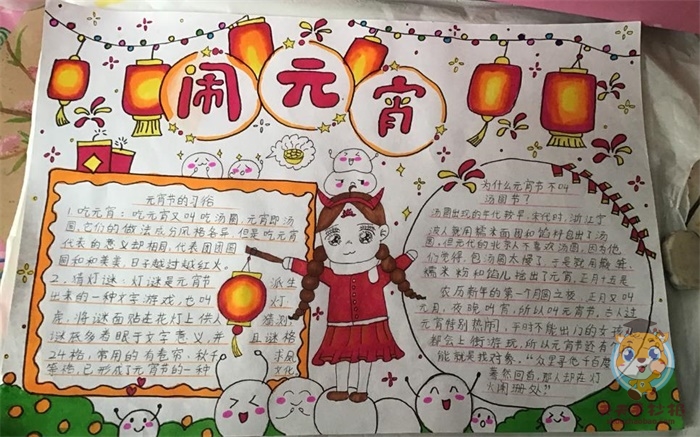 闹元宵
元宵节的习俗
1.吃元宵:吃元宵又叫吃汤圆,元宵即汤
圆,它们的做法成分风格各异,但是吃元宵
代表的意义却相同,代表团团圆
圆和和美美,日子越过越红火。
2.猜灯谜:灯谜是元宵节 派生
出来的一种文字游戏,也叫 灯
谜,将谜面贴在花灯上供人 猜射
谜底多着眼于文字意义,并 且谜格
24格,常用的有卷帘,秋千 求凤
等格,已形成了元宵节的一种 文化
为什么元宵节不叫
汤圆节?
汤圆出现的年代较早,宋代时,浙江宁
波人就用糯米面团和馅料包出了汤
圆,但元代的北京人不喜欢汤圆,因为他
们觉得,包汤圆太慢了,于是就用簸箕,
糯米粉和馅儿摇出了元宵,正月十五是
农历新年的第一个月圆之夜 正月又叫
元月,夜晚叫宵,所以叫元宵节,古人过
元宵特别热闹,平时不能出门的女孩
都会上街游玩,所以元宵节还有
能就是找对象,“众里寻他千百度
蓦然回首,那人却在灯
火阑珊处”